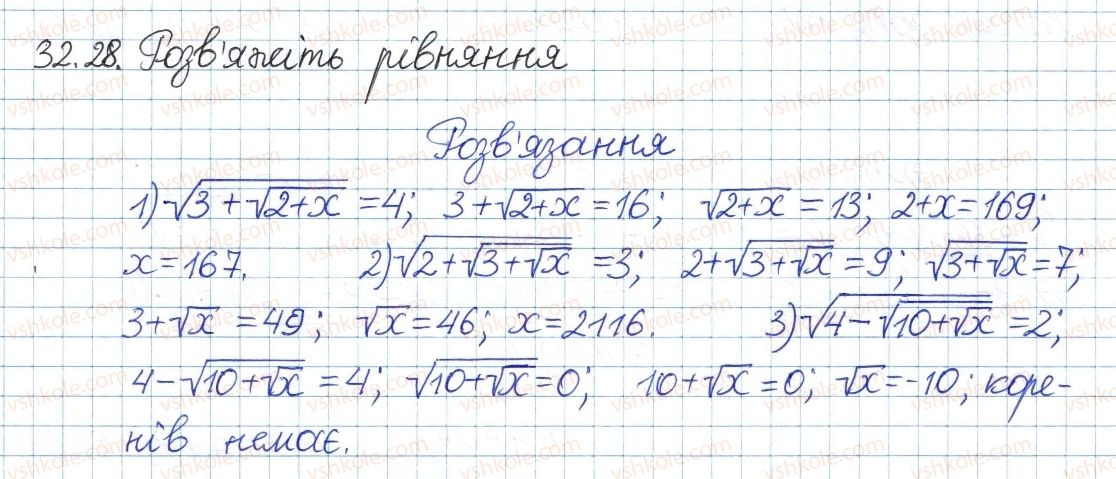 32.28. Розв'яжіть рівняння
Розв'язання
1) √(3+√(2+x)) = 4; 3+√(2+x) = 16; √(2+x) = 13; 2+x = 169;
x = 167. 2) √(2+√(3+√x)) = 3; 2+√(3+√x) = 9; √(3+√x) = 7;
3+√x = 49; √x = 46; x = 2116. 3) √(4-√(10+√x)) = 2;
4-√(10+√x) = 4; √(10+√x) = 0; 10+√x = 0; √x = -10; коре-
нів немає.